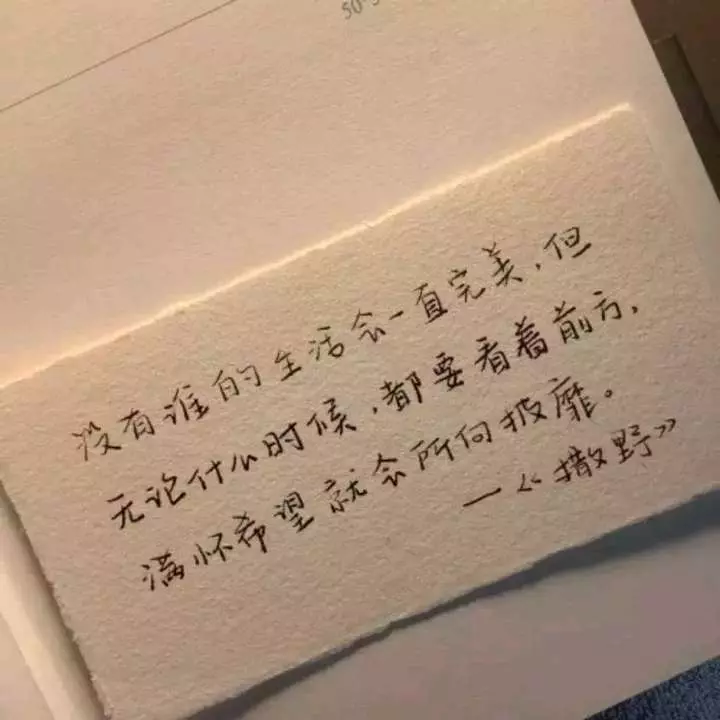 没有谁的生活会一直完美，但
无论什么时候，都要看着前方，
满怀希望就会所向披靡。
—《撒野》